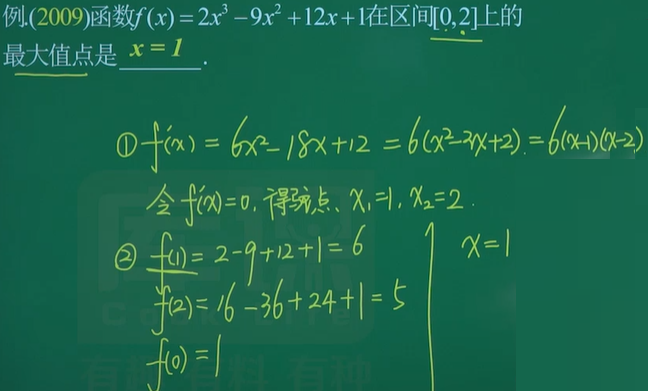 例.(2009)函数f(x)=2x³-9x²+12x+1在区间[0,2]上的
最大值点是 x=1 .
① f'(x) = 6x²-18x+12 = 6(x²-3x+2) = 6(x-1)(x-2)
令 f'(x)=0, 得驻点、x₁=1, x₂=2.
② f(1) = 2-9+12+1=6
x=1
f(2)=16-36+24+1=5
f(0)=1
有料 有种